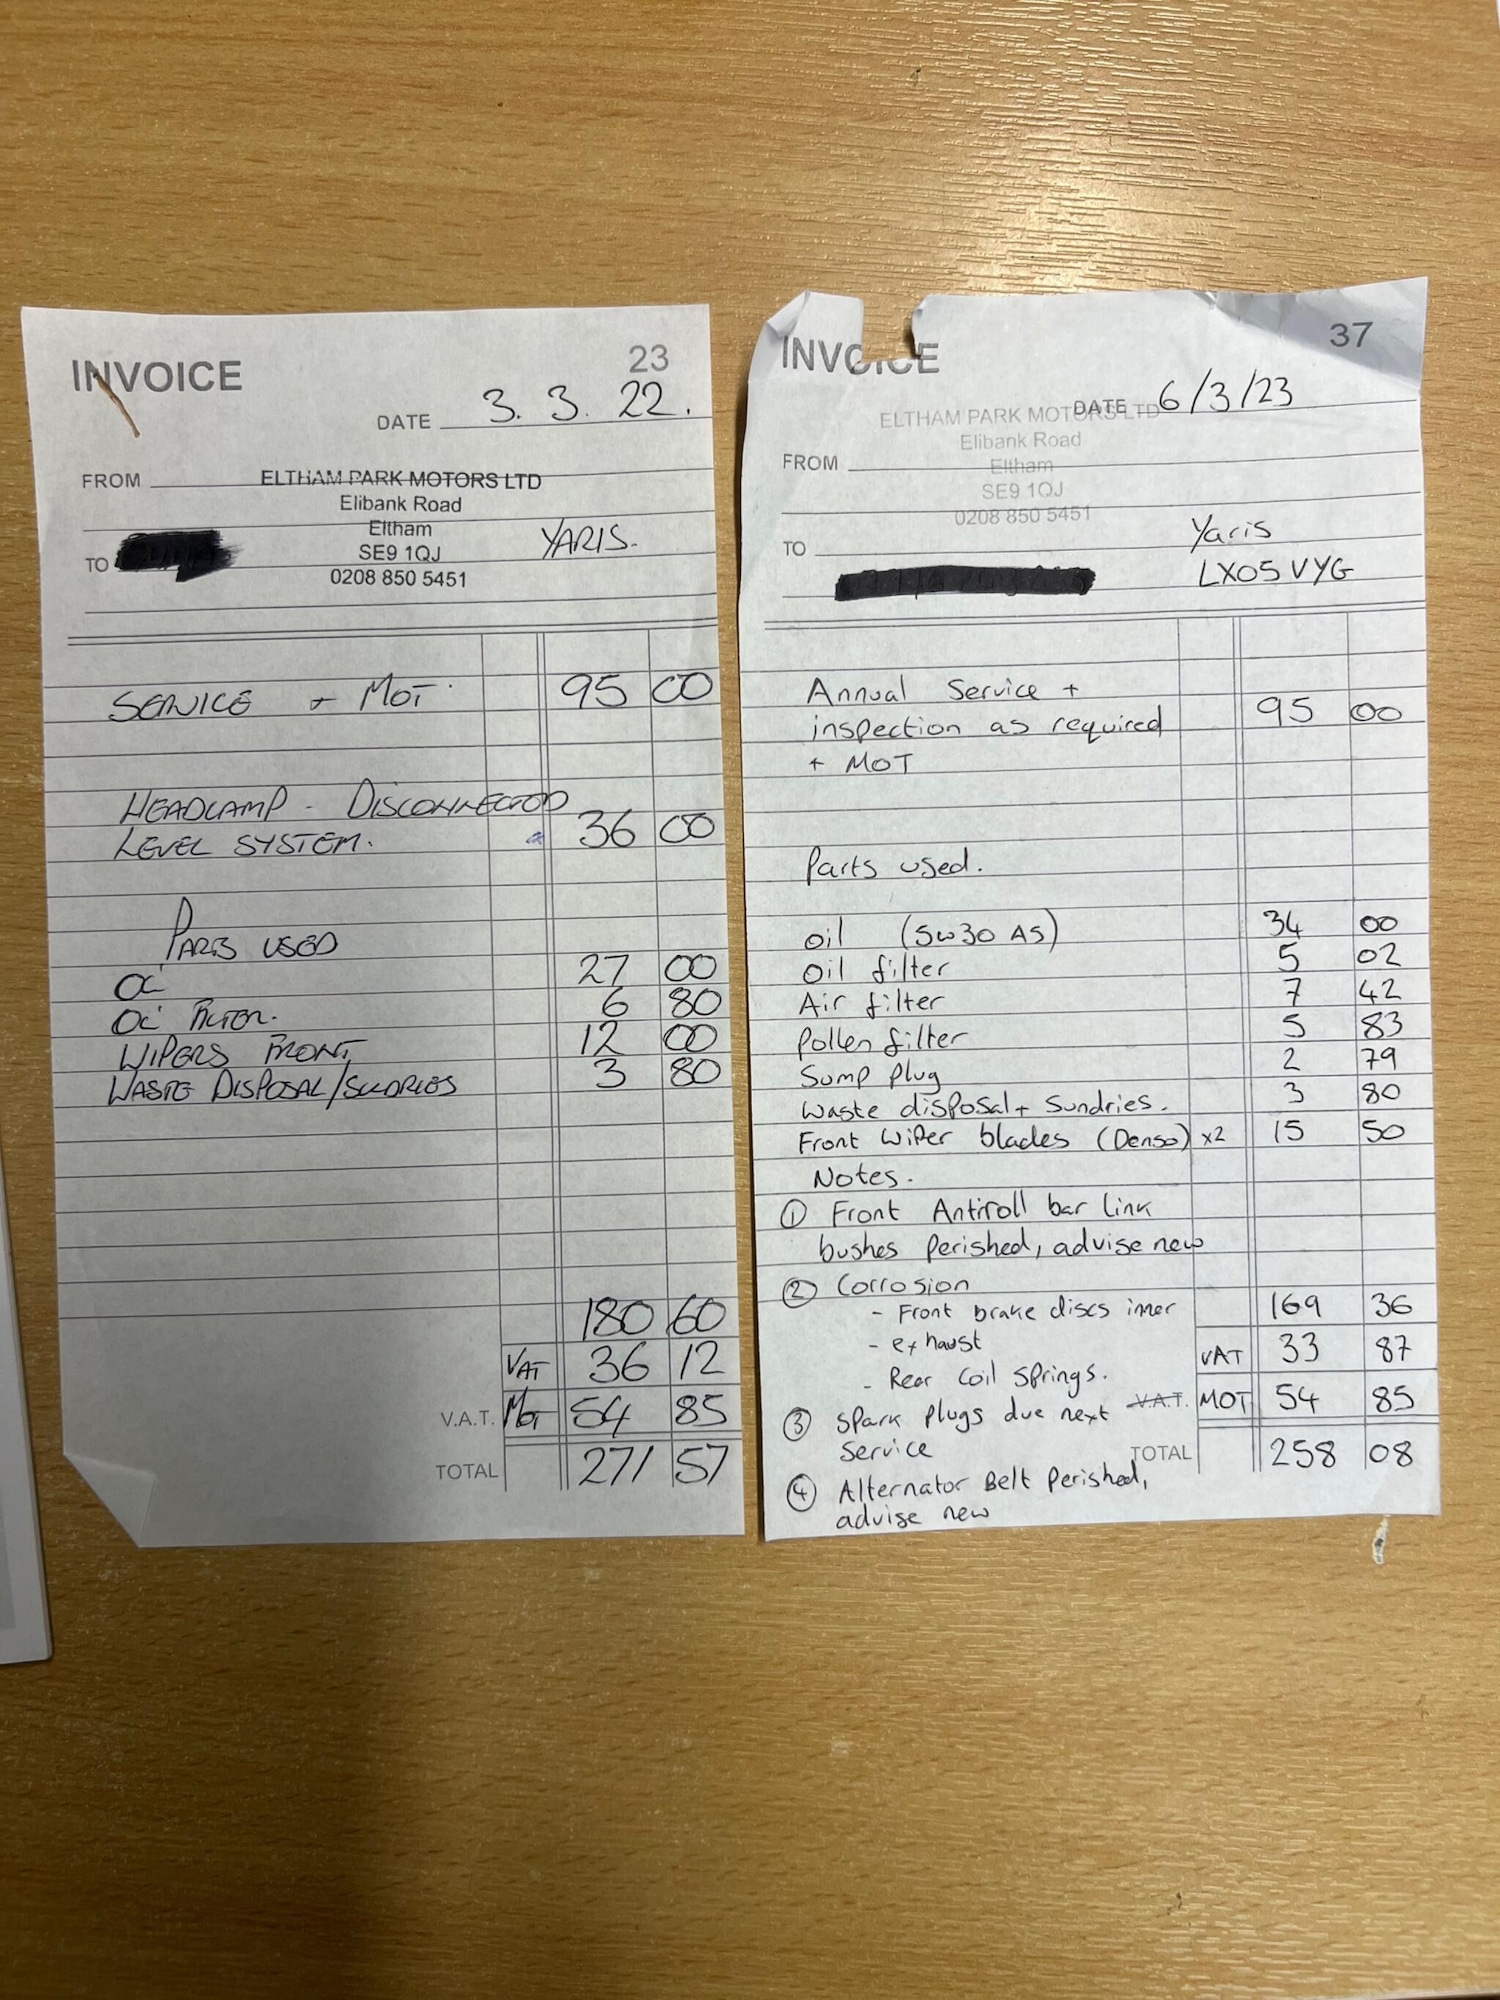 INVOICE 23
DATE 3. 3. 22.
FROM ELTHAM PARK MOTORS LTD
Elibank Road
Eltham
SE9 1QJ
0208 850 5451
TO YARIS.
SERVICE + MOT 95 00
HEADLAMP - DISCONNECTED
LEVEL SYSTEM. 36 00
PARTS USED
OIL 27 00
OIL FILTER. 6 80
WIPERS FRONT 12 00
WASTE DISPOSAL/SUNDRIES 3 80
180 60
VAT 36 12
V.A.T. MOT 54 85
TOTAL 271 57
INVOICE 37
DATE 6/3/23
ELTHAM PARK MOTORS LTD
Elibank Road
FROM Eltham
SE9 1QJ
0208 850 5451
TO Yaris
LX05 VYG
Annual Service +
inspection as required 95 00
+ MOT
Parts used.
oil (5w30 A5) 34 00
Oil filter 5 02
Air filter 7 42
Pollen filter 5 83
Sump plug 2 79
Waste disposal + Sundries. 3 80
Front Wiper blades (Denso) x2 15 50
Notes.
① Front Antiroll bar link
bushes Perished, advise new
② Corrosion
- Front brake discs inner 169 36
- exhaust VAT 33 87
- Rear Coil Springs.
③ Spark plugs due next V.A.T. MOT 54 85
Service TOTAL 258 08
④ Alternator Belt Perished,
advise new